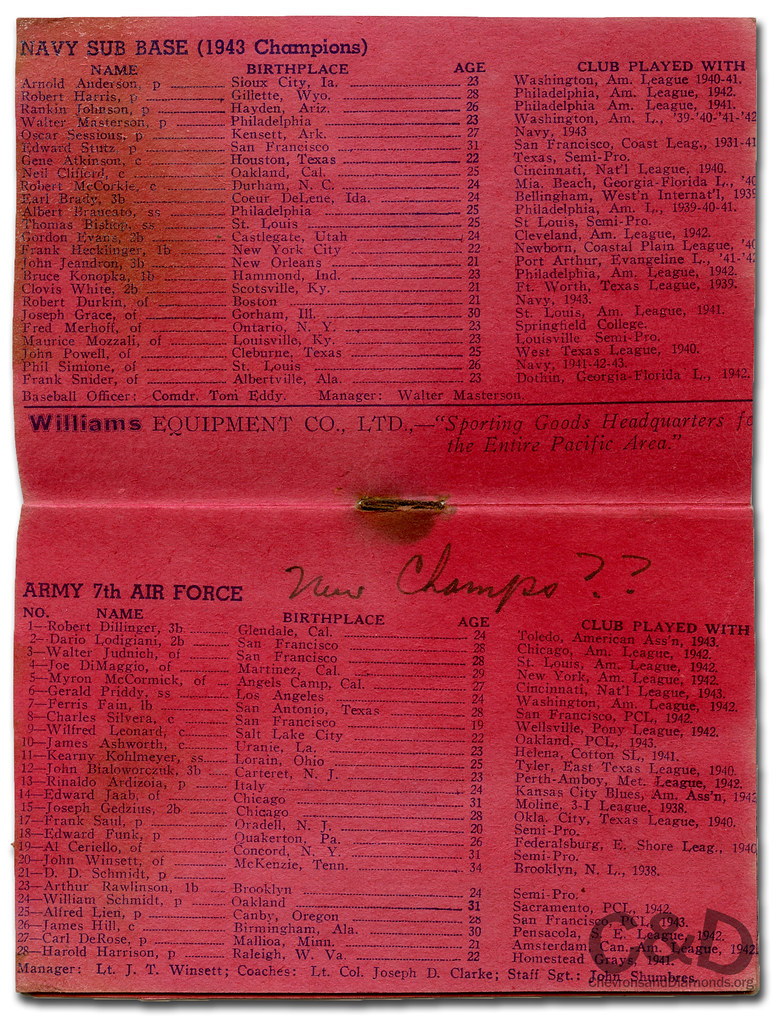 NAVY SUB BASE (1943 Champions)
NAME BIRTHPLACE AGE CLUB PLAYED WITH
Arnold Anderson, p Sioux City, Ia. 23 Washington, Am. League 1940-41.
Robert Harris, p Gillette, Wyo. 28 Philadelphia, Am. League, 1942.
Rankin Johnson, p Hayden, Ariz. 26 Philadelphia Am. League, 1941.
Walter Masterson, p Philadelphia 23 Washington, Am. L., '39-'40-'41-'42
Oscar Sessions, p Kensett, Ark. 27 Navy, 1943
Edward Stutz p San Francisco 31 San Francisco, Coast Leag., 1931-41
Gene Atkinson, c Houston, Texas 22 Texas, Semi-Pro.
Neil Clifferd, c Oakland, Cal. 25 Cincinnati, Nat'l League, 1940.
Robert McCorkle, c Durham, N. C. 24 Mia. Beach, Georgia-Florida L., '40
Earl Brady, 3b Coeur DeLene, Ida. 24 Bellingham, West'n Internat'l, 1939
Albert Brancato, ss Philadelphia 25 Philadelphia, Am. L., 1939-40-41.
Thomas Bishop, ss St. Louis 25 St Louis, Semi-Pro.
Gordon Evans, 2b Castlegate, Utah 24 Cleveland, Am. League, 1942.
Frank Hecklinger, 1b New York City 22 Newborn, Coastal Plain League, '40
John Jeandron, 3b New Orleans 21 Port Arthur, Evangeline L., '41-'42
Bruce Konopka, 1b Hammond, Ind. 23 Philadelphia, Am. League, 1942.
Clovis White, 2b Scotsville, Ky. 21 Ft. Worth, Texas League, 1939.
Robert Durkin, of Boston 21 Navy, 1943.
Joseph Grace, of Gorham, Ill. 30 St. Louis, Am. League, 1941.
Fred Merhoff, of Ontario, N. Y. 23 Springfield College.
Maurice Mozzali, of Louisville, Ky. 21 Louisville Semi-Pro.
John Powell, of Cleburne, Texas 25 West Texas League, 1940.
Phil Simione, of St. Louis 26 Navy, 1941-42-43.
Frank Snider, of Albertville, Ala. 23 Dothin, Georgia-Florida L., 1942.
Baseball Officer: Comdr. Tom Eddy. Manager: Walter Masterson.
Williams EQUIPMENT CO., LTD.,—"Sporting Goods Headquarters fo
the Entire Pacific Area."
New Champs??
ARMY 7th AIR FORCE
NO. NAME BIRTHPLACE AGE CLUB PLAYED WITH
1—Robert Dillinger, 3b Glendale, Cal. 24 Toledo, American Ass'n, 1943.
2—Dario Lodigiani, 2b San Francisco 28 Chicago, Am. League, 1942.
3—Walter Judnich, of San Francisco 28 St. Louis, Am. League, 1942.
4—Joe DiMaggio, of Martinez, Cal. 29 New York, Am. League, 1942.
5—Myron McCormick, of Angels Camp, Cal. 27 Cincinnati, Nat'l League, 1943.
6—Gerald Priddy, ss Los Angeles 24 Washington, Am. League, 1942.
7—Ferris Fain, 1b San Antonio, Texas 28 San Francisco, PCL, 1942.
8—Charles Silvera, c San Francisco 19 Wellsville, Pony League, 1942.
9—Wilfred Leonard, c Salt Lake City 22 Oakland, PCL, 1943.
10—James Ashworth, c Uranie, La. 23 Helena, Cotton SL, 1941.
11—Kearny Kohlmeyer, ss Lorain, Ohio 25 Tyler, East Texas League, 1940.
12—John Bialoworczuk, 3b Carteret, N. J. 23 Perth-Amboy, Met. League, 1942.
13—Rinaldo Ardizoia, p Italy 24 Kansas City Blues, Am. Ass'n, 1942
14—Edward Jaab, of Chicago 31 Moline, 3-I League, 1938.
15—Joseph Gedzius, 2b Chicago 28 Okla. City, Texas League, 1940.
17—Frank Saul, p Oradell, N. J. 20 Semi-Pro.
18—Edward Funk, p Quakerton, Pa. 26 Federalsburg, E. Shore Leag., 1940
19—Al Ceriello, of Concord, N. Y. 31 Semi-Pro.
20—John Winsett, of McKenzie, Tenn. 34 Brooklyn, N. L., 1938.
21—D. D. Schmidt, p
23—Arthur Rawlinson, 1b Brooklyn 24 Semi-Pro.
24—William Schmidt, p Oakland 31 Sacramento, PCL, 1942.
25—Alfred Lien, p Canby, Oregon 28 San Francisco, PCL, 1943.
26—James Hill, c Birmingham, Ala. 30 Pensacola, S. E. League, 1942.
27—Carl DeRose, p Mallioa, Minn. 21 Amsterdam, Can.-Am. League, 1942.
28—Harold Harrison, p Raleigh, W. Va. 22 Homestead Grays, 1941.
Manager: Lt. J. T. Winsett; Coaches: Lt. Col. Joseph D. Clarke; Staff Sgt.: John Shumbres.
C&D
ChevronsandDiamonds.org